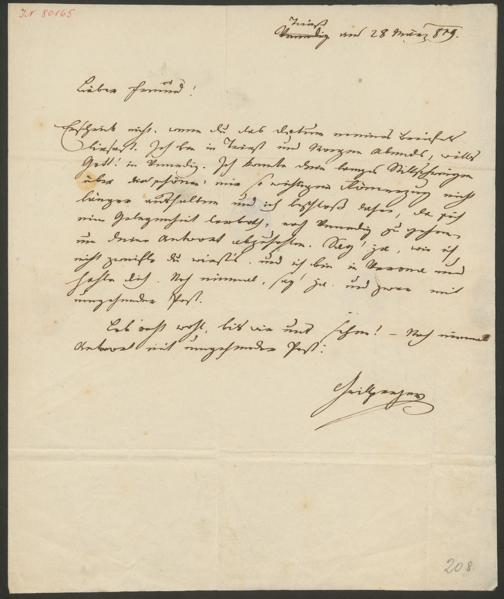 I.N. 80865
Triest
Venedig am 28 März 819.
Lieber Freund!
Erschrick nicht, wenn du das Datum meines Briefes
liesest. Ich bin in Triest und Morgen Abends, wills
Gott! in Venedig. Ich konnte dein langes Stillschweigen
über die schöne, mir so wichtige nicht
länger aushalten und ich beschloß daher, da sich
eine Gelegenheit darboth, nach Venedig zu gehen,
um deine Antwort abzuholen. Sag ja, wie ich
nicht zweifle du wirst, und ich bin in Verona und
hohle dich. Noch einmal, sag ja und zwar mit
umgehender Post.
Leb recht wohl, bis wir uns sehn! – Noch einmal
Antwort mit umgehender Post!
Grillparzer
208